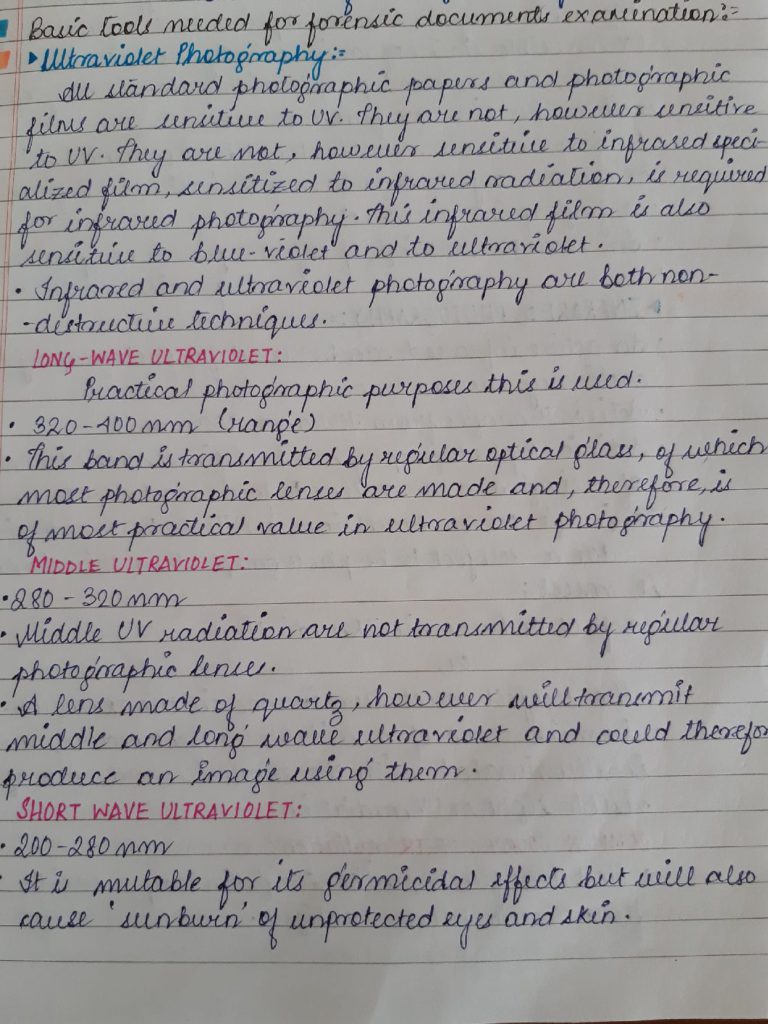 Basic tools needed for forensic documents examination:-
▸Ultraviolet Photography:-
All standard photographic papers and photographic
films are sensitive to UV. They are not, however sensitive
to UV. They are not, however sensitive to infrared speci-
alized film, sensitized to infrared radiation, is required
for infrared photography. This infrared film is also
sensitive to blue-violet and to ultraviolet.
• Infrared and ultraviolet photography are both non-
-distructive techniques.
LONG-WAVE ULTRAVIOLET:
Practical photographic purposes this is used.
• 320-400nm (range)
• This band is transmitted by regular optical glass, of which
most photographic lenses are made and, therefore, is
of most practical value in ultraviolet photography.
MIDDLE ULTRAVIOLET:
• 280-320nm
• Middle UV radiation are not transmitted by regular
photographic lenses.
• A lens made of quartz, however will transmit
middle and long wave ultraviolet and could therefor
produce an image using them.
SHORT WAVE ULTRAVIOLET:
• 200-280nm
• It is mutable for its germicidal effects but will also
cause 'sunburn' of unprotected eyes and skin.